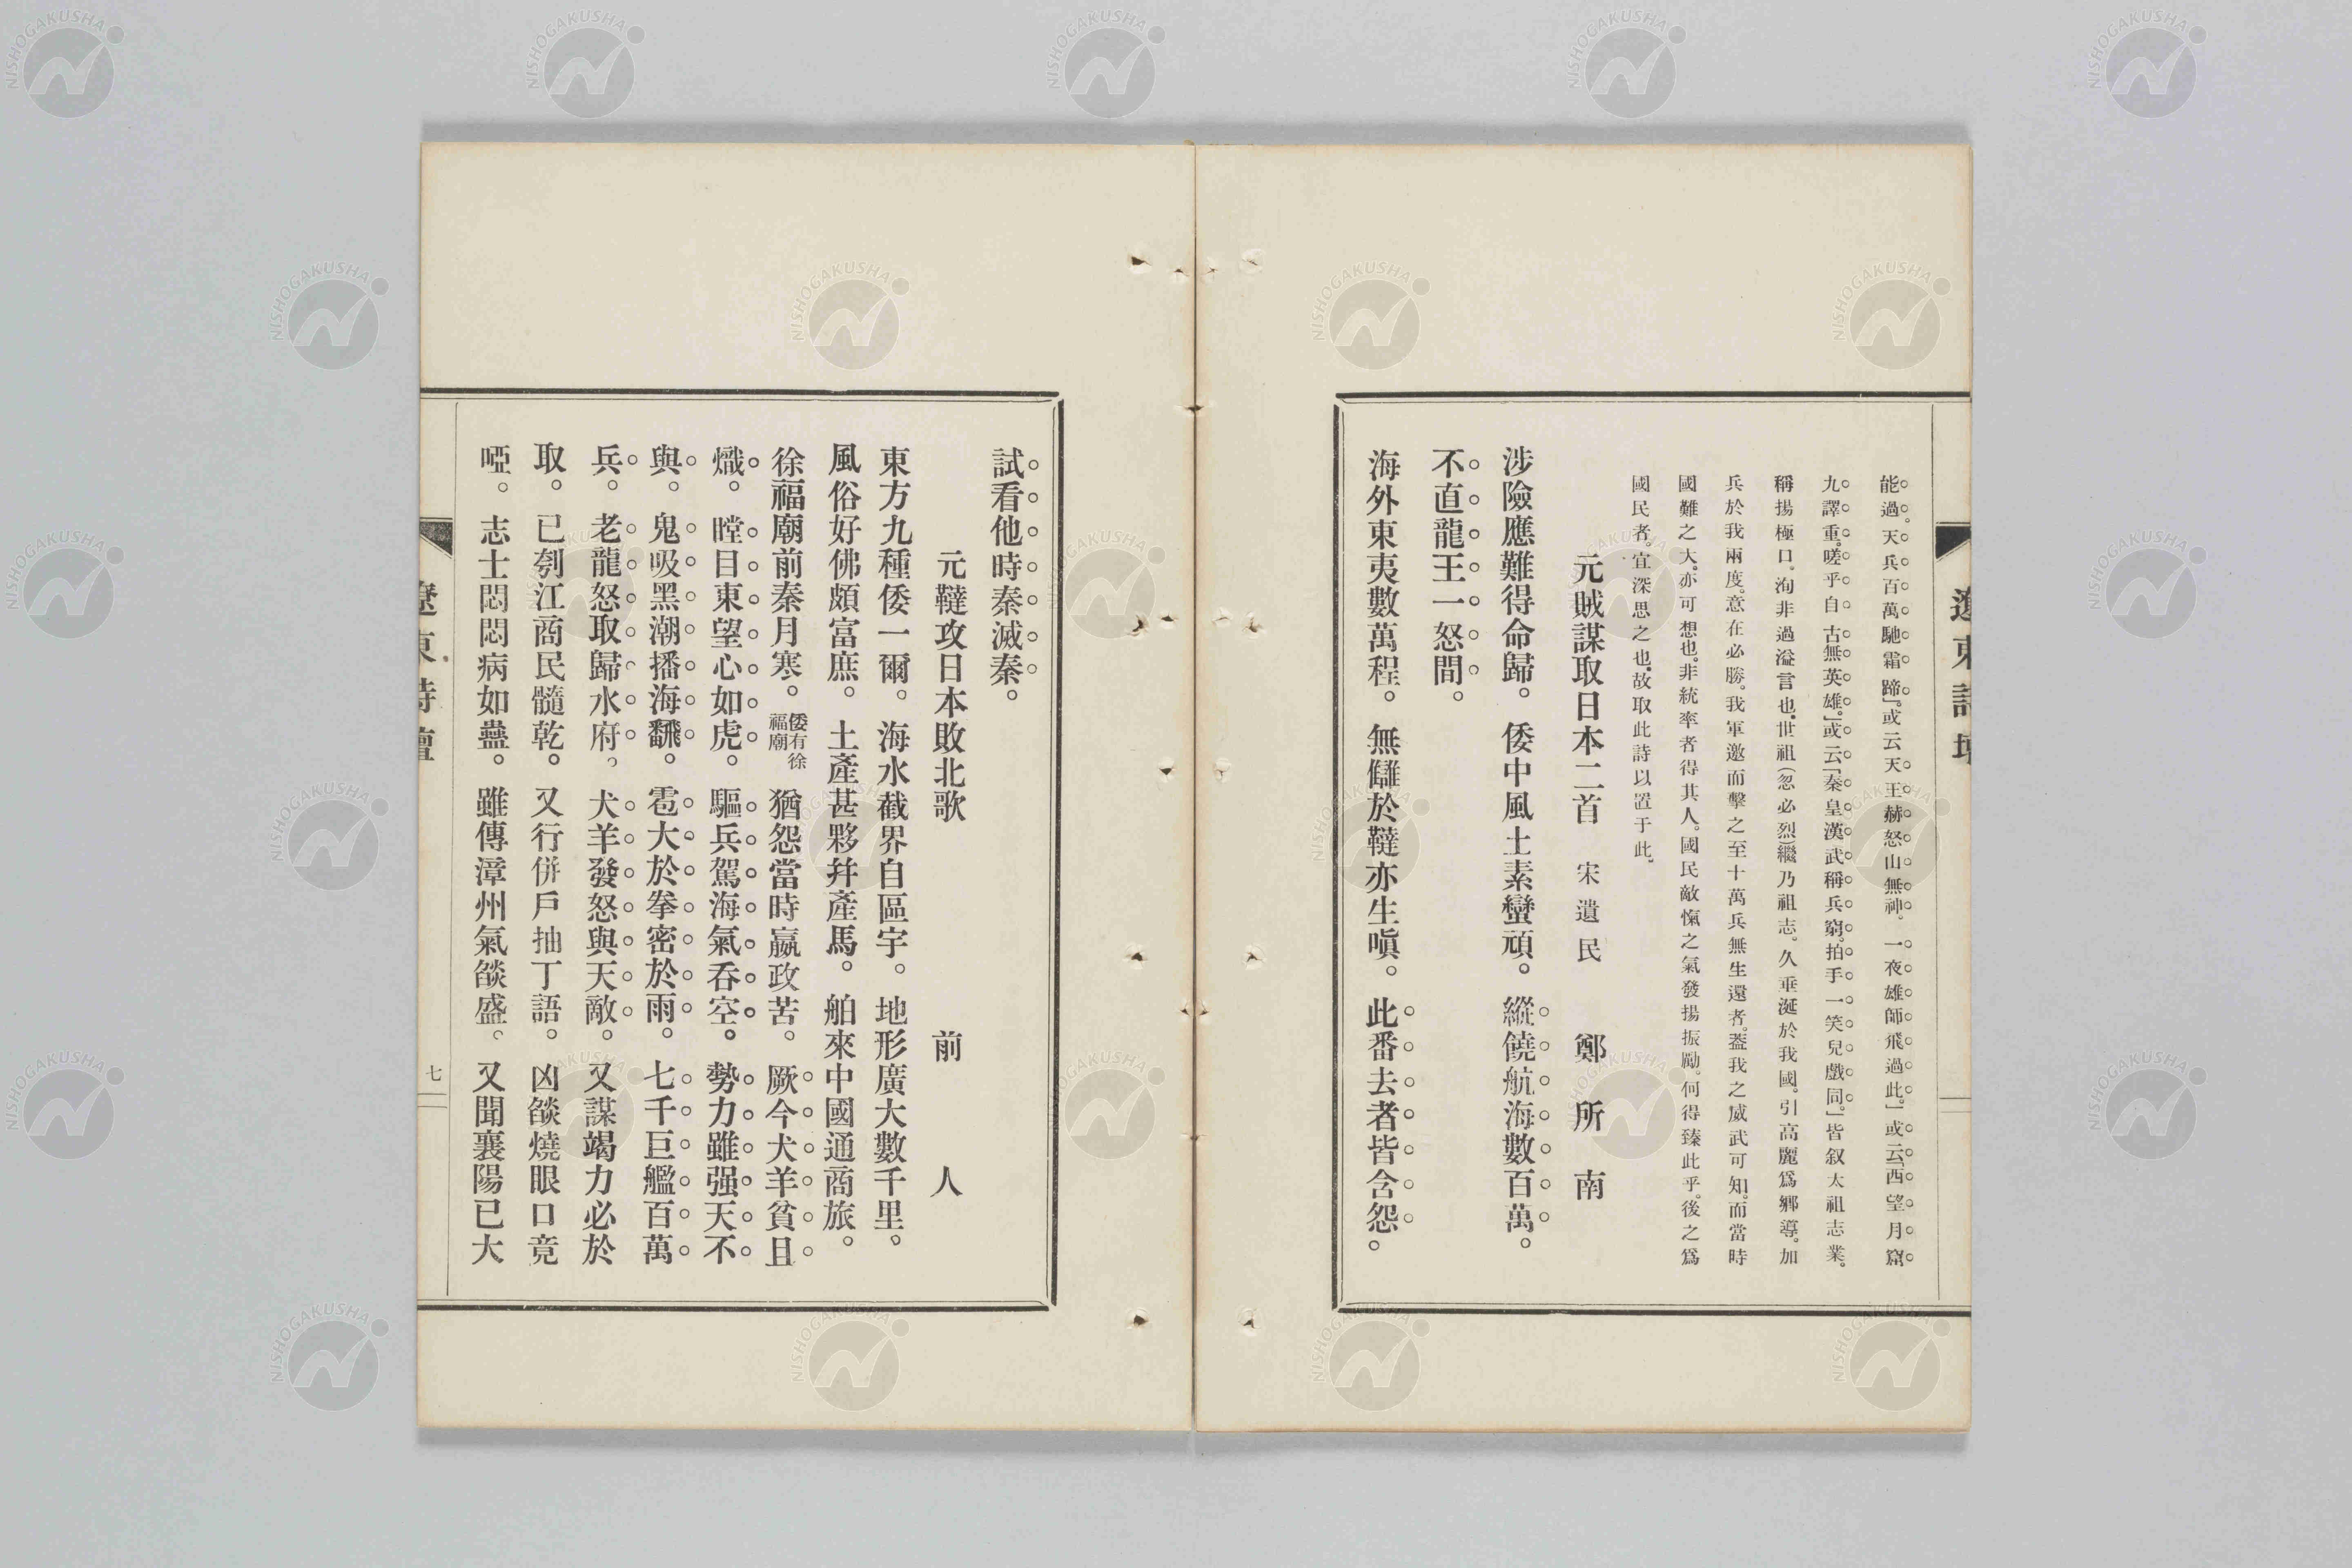 遼東詩壇
能過。天兵百萬馳霜蹄。」或云天王赫怒山無神。一夜雄師飛過此。」或云「西望月窟
九譯重。嗟乎自古無英雄。」或云「秦皇漢武稱兵窮。拍手一笑兒戲同。」皆叙太祖志業。
稱揚極口。洵非過溢言也。世祖(忽必烈)繼乃祖志。久垂涎於我國。引高麗爲鄉導。加
兵於我兩度。意在必勝。我軍邀而擊之至十萬兵無生還者。蓋我之威武可知。而當時
國難之大。亦可想也。非統率者得其人。國民敵愾之氣發揚振勵。何得臻此乎。後之爲
國民者。宜深思之也。故取此詩以置于此。
元賊謀取日本二首 宋遺民 鄭所南
涉險應難得命歸。倭中風土素蠻頑。縱饒航海數百萬。
不直龍王一怒間。
海外東夷數萬程。無讎於韃亦生嗔。此番去者皆含怨。
試看他時秦滅秦。
元韃攻日本敗北歌 前人
東方九種倭一爾。海水截界自區宇。地形廣大數千里。
風俗好佛頗富庶。土產甚夥幷產馬。舶來中國通商旅。
徐福廟前秦月寒。倭有徐福廟猶怨當時嬴政苦。厥今犬羊貧且
熾。瞠目東望心如虎。驅兵駕海氣吞空。勢力雖强天不
與。鬼吸黑潮播海飜。雹大於拳密於雨。七千巨艦百萬
兵。老龍怒取歸水府。犬羊發怒與天敵。又謀竭力必於
取。已刳江商民髓乾。又行併戶抽丁語。凶燄燒眼口竟
啞。志士悶悶病如蠱。雖傳漳州氣燄盛。又聞襄陽已大
遼東詩壇
七
NISHOGAKUSHA